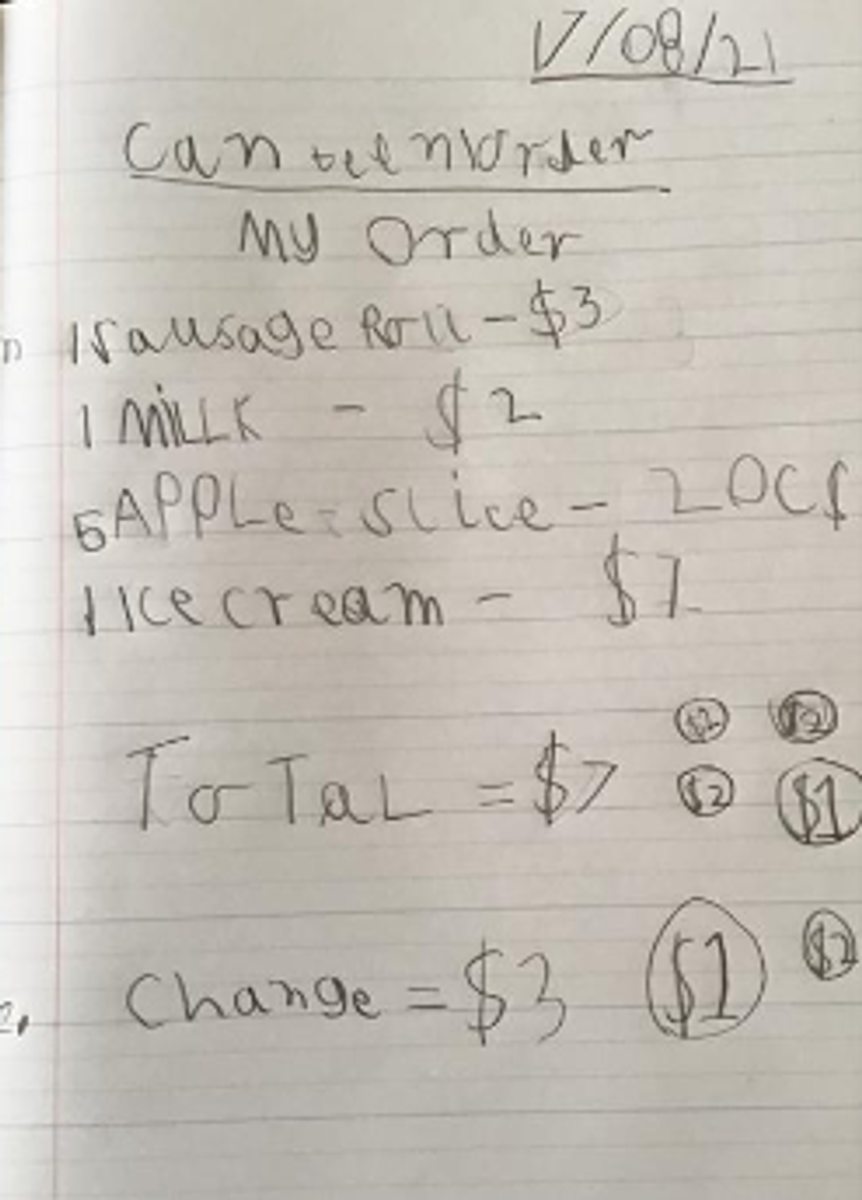 17/08/21
Canteen Order
My Order
1 Sausage Roll - $3
1 MiLLK - $2
5 APPLe-Slice - 20C $
1 Ice cream - $1
$2 $2
ToTaL = $7 $2 $1
Change = $3 $1 $2